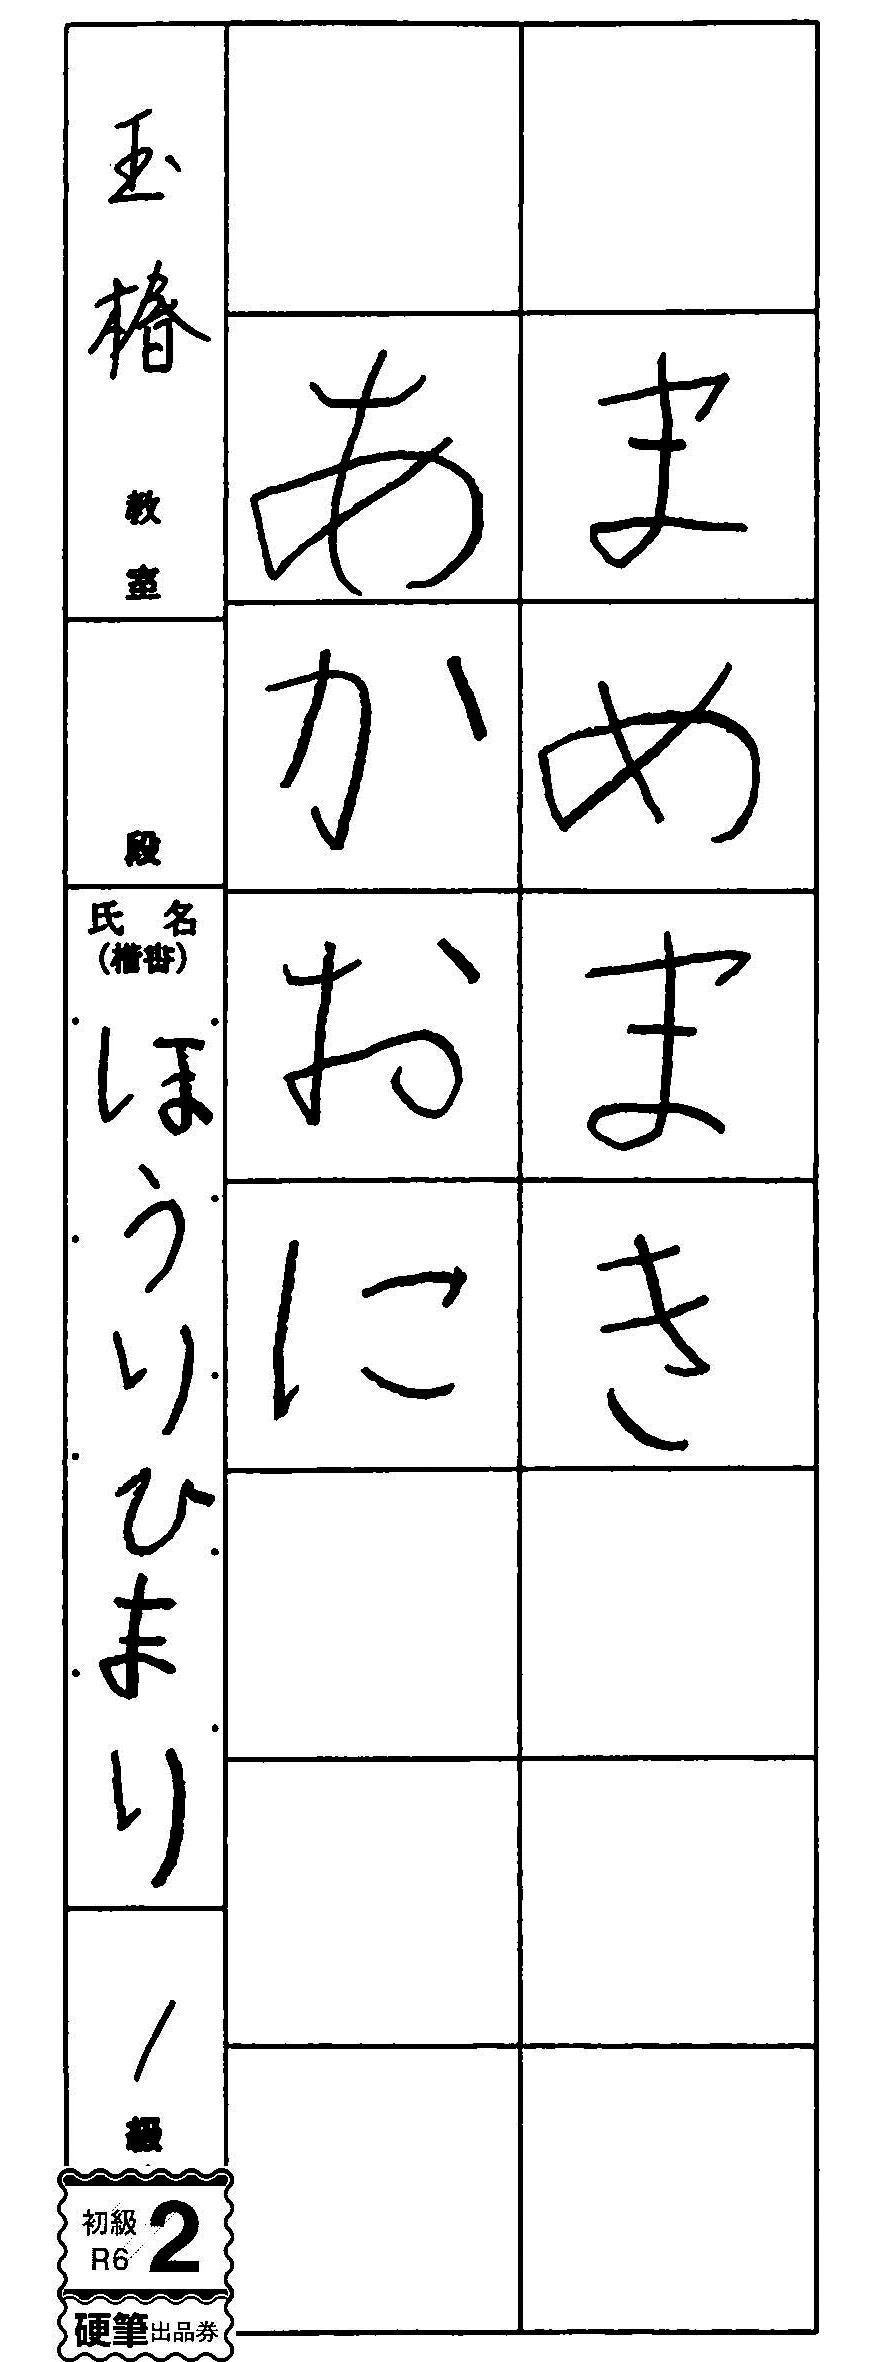 まめまき
あかおに
玉椿教室
段
氏名
(楷書)
ほうりひまり
1級
初級
R6
2
硬筆出品券